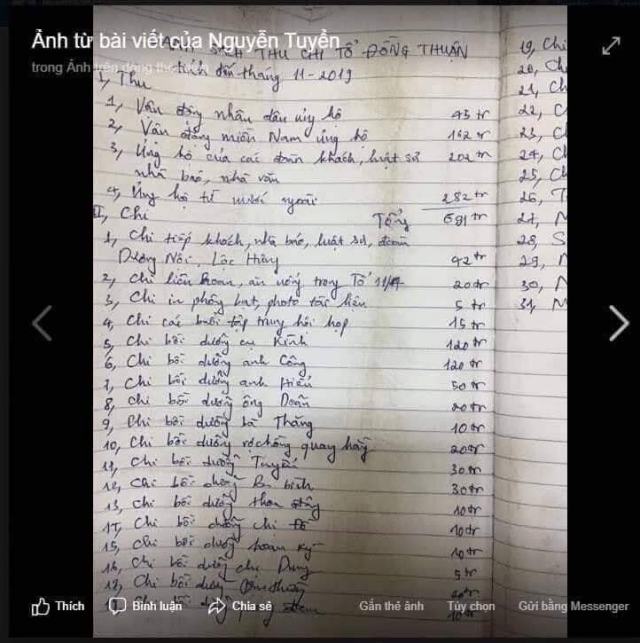 Ảnh từ bài viết của Nguyễn Tuyển
trong Ảnh trên dòng thời gian
SÁCH THU CHI TỔ ĐỒNG THUẬN
tính đến tháng 11-2019
I, Thu
1, Vận động nhân dân ủng hộ 45 tr
2, Vận động miền Nam ủng hộ 162 tr
3, Ủng hộ của các đoàn khách, luật sư 202 tr
nhà báo, nhà văn
4, Ủng hộ từ nước ngoài 282 tr
Tổng 691 tr
II, Chi
1, Chi tiếp khách, nhà báo, luật sư, đoàn
Dương Nội, Lộc Hưng 42 tr
2, Chi liên hoan, ăn uống trong Tổ 20 tr
3, Chi in phông bạt, photo tài liệu 5 tr
4, Chi các buổi tập trung hội họp 15 tr
5, Chi bồi dưỡng cụ Kình 120 tr
6, Chi bồi dưỡng anh Công 120 tr
7, Chi bồi dưỡng anh Hiểu 50 tr
8, Chi bồi dưỡng ông Doãn 20 tr
9, Chi bồi dưỡng bà Thăng 10 tr
10, Chi bồi dưỡng vợ chồng quay hãy 20 tr
11, Chi bồi dưỡng Tuyển 30 tr
12, Chi bồi dưỡng 30 tr
13, Chi bồi dưỡng 10 tr
Chi bồi dưỡng chị 10 tr
15, Chi bồi dưỡng 10 tr
16, Chi bồi dưỡng Dung 5 tr
17, Chi bồi dưỡng
Chi bồi dưỡng 10 tr
19, Chi
20,
21, Ch
22, C
23, C
24, Cl
25, C
26, T
27, N
28, S
29, N
30, N
31, M
Thích
Bình luận
Chia sẻ
Gắn thẻ ảnh
Tùy chọn
Gửi bằng Messenger